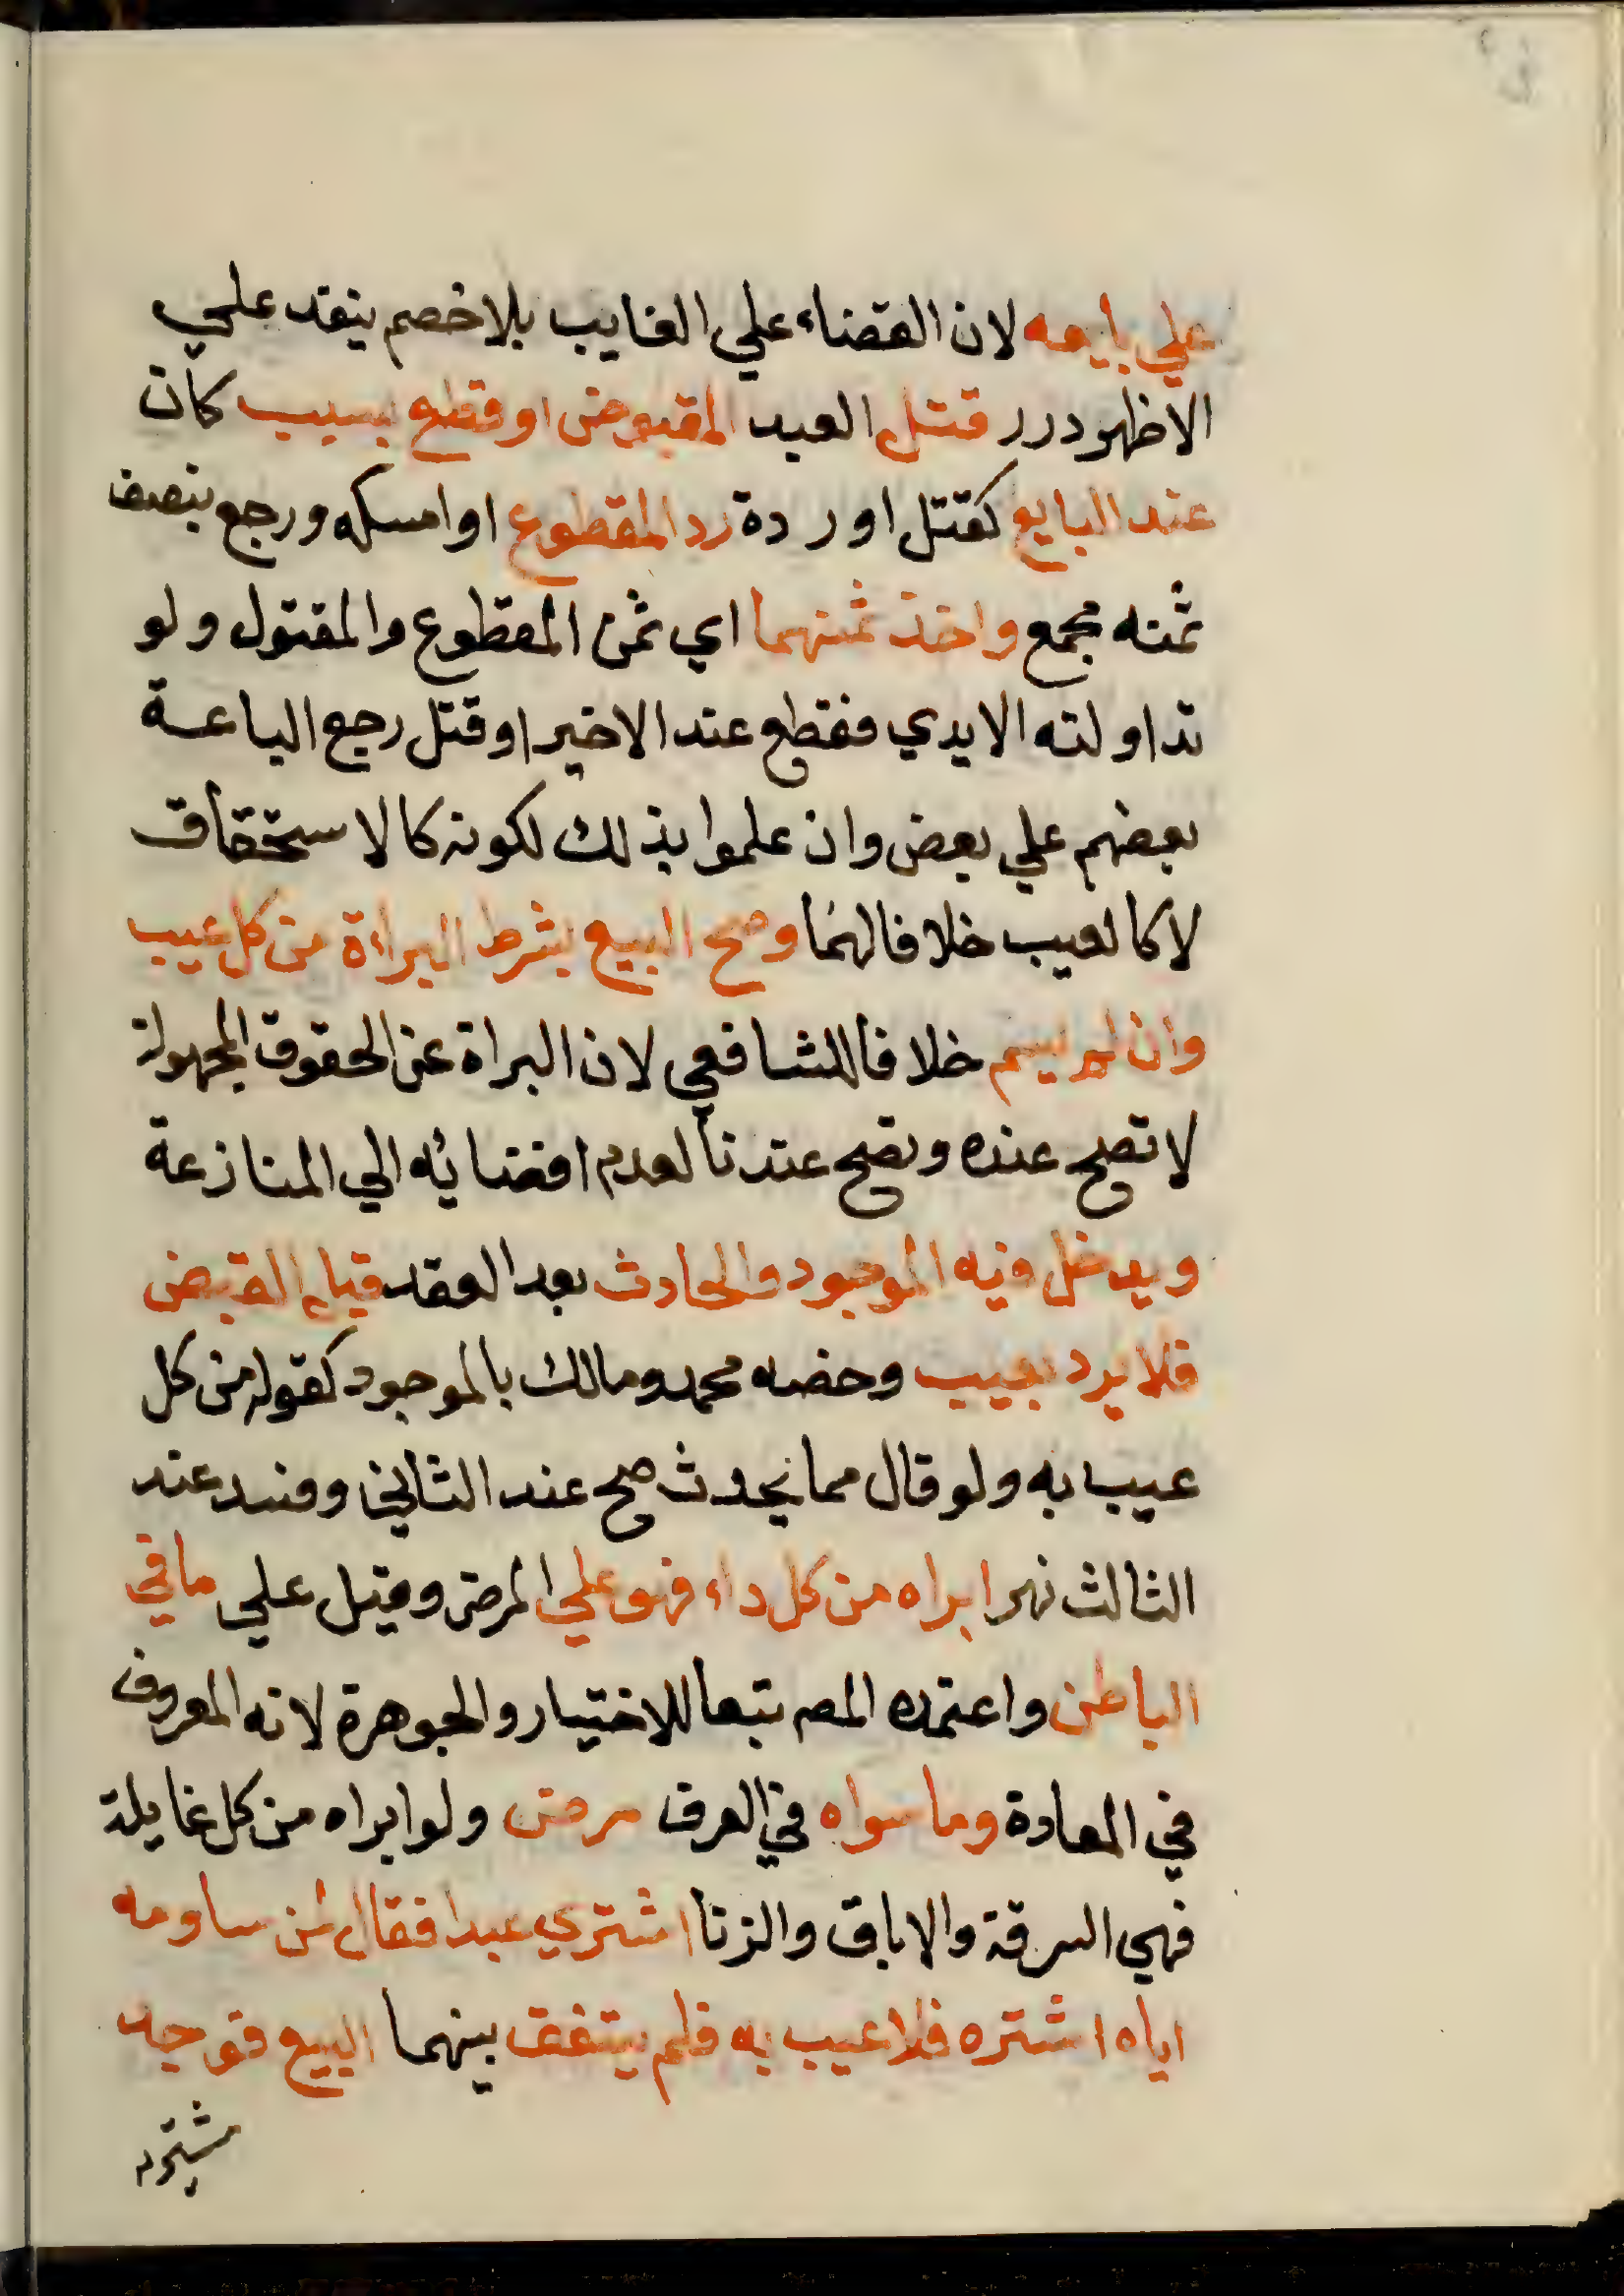 علي بايعه لان القضاء علي الغايب بلا خصم ينقد علي
الاظهر درر قتل العبد المقبوض او قطع بسبب كان
عند البايع كقتل او ردة رد المقطوع او امسكه ورجع بنصف
ثمنه مجمع واخذ ثمنهما اي ثمن المقطوع والمقتول ولو
تداولته الايدي فقطع عند الاخير او قتل رجع الباعة
بعضهم علي بعض وان علموا بذلك لكونه كالاستحقاق
لا كالعيب خلافا لهما وصح البيع بشرط البراءة من كل عيب
وان لم يسم خلافا للشافعي لان البراة عن الحقوق المجهولة
لا تصح عنده وتصح عندنا لعدم افضائه الي المنازعة
ويدخل فيه الموجود والحادث بعد العقد قبل القبض
فلا يرد بعيب وخصه محمد ومالك بالموجود كقوله من كل
عيب به ولو قال مما يحدث صح عند الثاني وفسد عند
الثالث نهر ابراه من كل داء فهو علي المرض وقيل علي ما في
الباطن واعتمده المص تبعا للاختيار والجوهرة لانه المعروف
في العادة وما سواه في العرف مرض ولو ابراه من كل غايلة
فهي السرقة والاباق والزنا اشتري عبدا فقال لمن ساومه
اياه اشتره فلا عيب به فلم يتفق بينهما البيع فوجد
مشتريه